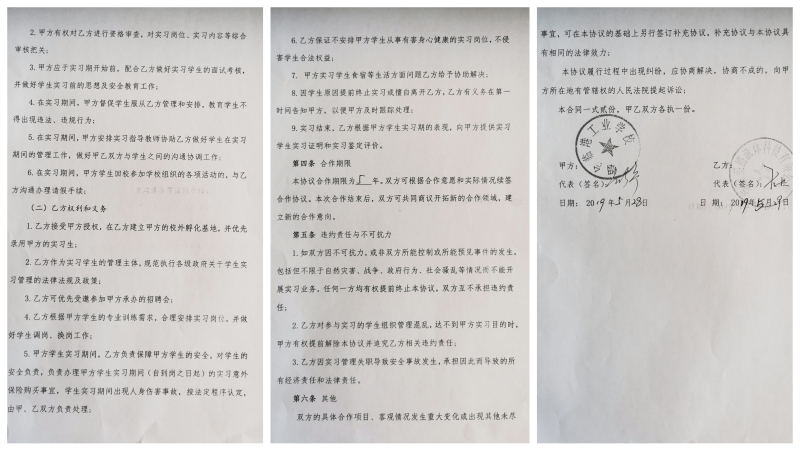 2.甲方有权对乙方进行资格审查，对实习岗位、实习内容等综合
审核把关；
3.甲方应于实习期开始前，配合乙方做好实习学生的面试考核，
并做好学生实习前的思想及安全教育工作；
4.在实习期间，甲方督促学生服从乙方管理和安排，教育学生不
得出现违法、违规行为；
5.在实习期间，甲方安排实习指导教师协助乙方做好学生在实习
期间的管理工作，做好甲乙双方与学生之间的沟通协调工作；
6.在实习期间，甲方学生因校参加学校组织的各项活动的，与乙
方沟通办理请假手续；
（二）乙方权利和义务
1.乙方接受甲方授权，在乙方建立甲方的校外孵化基地，并优先
录用甲方的实习生；
2.乙方作为实习学生的管理主体，规范执行各级政府关于学生实
习管理的法律法规及政策；
3.乙方可优先受邀参加甲方承办的招聘会；
4.乙方根据甲方学生的专业训练需求，合理安排实习岗位，并做
好学生调岗、换岗工作；
5.甲方学生实习期间，乙方负责保障甲方学生的安全，对学生的
安全负责，负责办理甲方学生实习期间（自到岗之日起）的实习意外
保险购买事宜，学生实习期间出现人身伤害事故，按法定程序认定，
由甲、乙双方负责处理；
6.乙方保证不安排甲方学生从事有害身心健康的实习岗位，不侵
害学生合法权益；
7.甲方实习学生食宿等生活方面问题乙方给予协助解决；
8.因学生原因提前终止实习或擅自离开乙方，乙方有义务在第一
时间告知甲方，以便甲方及时跟踪处理；
9.实习结束，乙方根据甲方学生实习期的表现，向甲方提供实习
学生实习证明和实习鉴定评价。
第四条 合作期限
本协议合作期限为5年。双方可根据合作意愿和实际情况续签
合作协议。本次合作结束后，双方可共同商议开拓新的合作领域，建
立新的合作意向。
第五条 违约责任与不可抗力
1.如双方因不可抗力，或非双方所能控制或所能预见事件的发生，
包括但不限于自然灾害、战争、政府行为、社会骚乱等情况而不能开
展实习业务，任何一方均有权提前终止本协议，双方互不承担违约责
任；
2.乙方对参与实习的学生组织管理混乱，达不到甲方实习目的时，
甲方有权提前解除本协议并追究乙方相关违约责任；
3.乙方因实习管理失职导致安全事故发生，承担因此而导致的所
有经济责任和法律责任。
第六条 其他
双方的具体合作项目、客观情况发生重大变化或出现其他未尽
事宜，可在本协议的基础上另行签订补充协议，补充协议与本协议具
有相同的法律效力；
本协议履行过程中出现纠纷，应协商解决，协商不成的，向甲
方所在地有管辖权的人民法院提起诉讼；
本合同一式贰份，甲乙双方各执一份。
工业学校
甲方：
代表（签名）：
日期：2019年5月28日
乙方：
代表（签名）：
日期：2019年5月29日